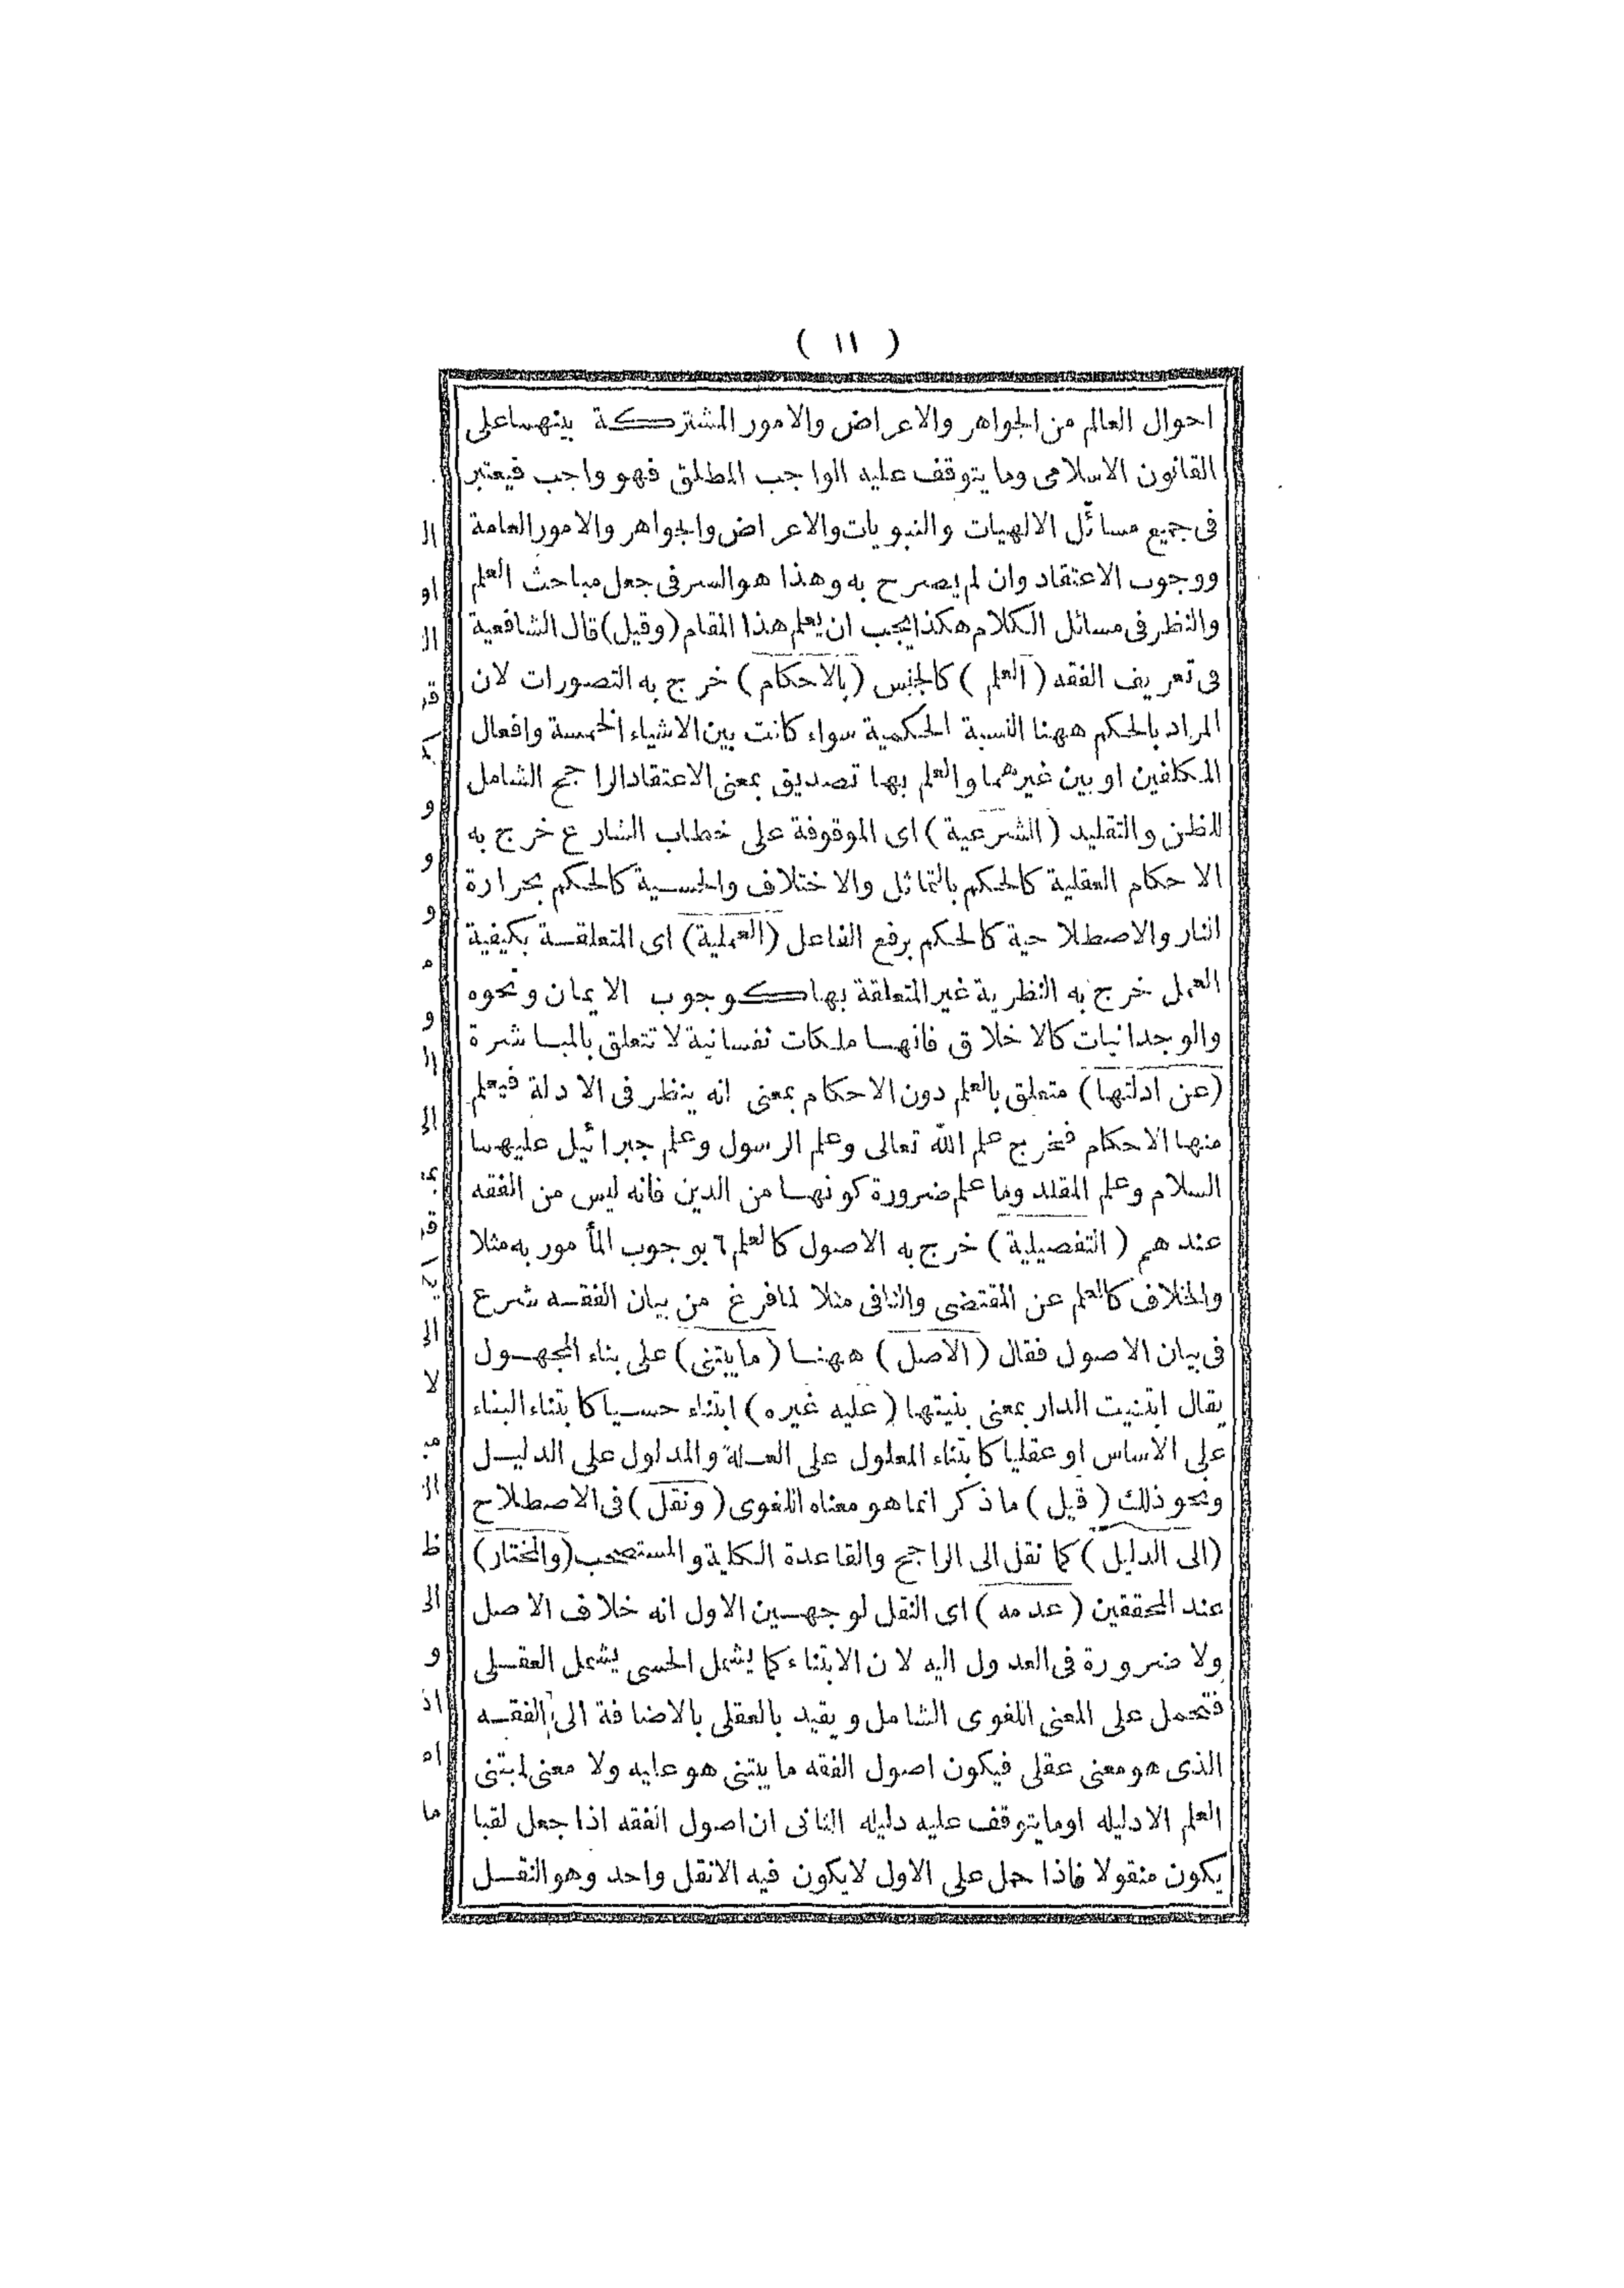 ( ١١ )
احوال العالم من الجواهر والاعراض والامور المشتركة بينهما على
القانون الاسلامى وما يتوقف عليه الواجب المطلق فهو واجب فيعتبر
فى جميع مسائل الالهيات والنبويات والاعراض والجواهر والامور العامة
ووجوب الاعتقاد وان لم يصرح به وهذا هو السر فى جعل مباحث العلم
والنظر فى مسائل الكلام هكذا يجب ان يعلم هذا المقام (وقيل) قال الشافعية
فى تعريف الفقه ( العلم ) كالجنس (بالاحكام ) خرج به التصورات لان
المراد بالحكم ههنا النسبة الحكمية سواء كانت بين الاشياء الخمسة وافعال
المكلفين او بين غيرهما والعلم بها تصديق بمعنى الاعتقاد الراجح الشامل
للظن والتقليد ( الشرعية ) اى الموقوفة على خطاب الشارع خرج به
الاحكام العقلية كالحكم بالتماثل والاختلاف والحسية كالحكم بحرارة
النار والاصطلاحية كالحكم برفع الفاعل (العملية) اى المتعلقة بكيفية
العمل خرج به النظرية غير المتعلقة بها كوجوب الايمان ونحوه
والوجدانيات كالاخلاق فانها ملكات نفسانية لا تتعلق بالمباشرة
(عن ادلتها) متعلق بالعلم دون الاحكام بمعنى انه ينظر فى الادلة فيعلم
منها الاحكام فخرج علم الله تعالى وعلم الرسول وعلم جبرائيل عليهما
السلام وعلم المقلد وما علم ضرورة كونها من الدين فانه ليس من الفقه
عندهم ( التفصيلية ) خرج به الاصول كالعلم ٦ بوجوب المأمور به مثلا
والخلاف كالعلم عن المقتضى والنافى مثلا لما فرغ من بيان الفقه شرع
فى بيان الاصول فقال ( الاصل ) ههنا ( ما يبتنى ) على بناء المجهول
يقال ابتنيت الدار بمعنى بنيتها ( عليه غيره ) ابتناء حسيا كابتناء البناء
على الاساس او عقليا كابتناء المعلول على العلة والمدلول على الدليل
ونحو ذلك ( قيل ) ما ذكر انما هو معناه اللغوى ( ونقل ) فى الاصطلاح
(الى الدليل ) كما نقل الى الراجح والقاعدة الكلية والمستصحب (والمختار)
عند المحققين ( عدمه ) اى النقل لوجهين الاول انه خلاف الاصل
ولا ضرورة فى العدول اليه لان الابتناء كما يشمل الحسى يشمل العقلى
فتحمل على المعنى اللغوى الشامل ويقيد بالعقلى بالاضافة الى الفقه
الذى هو معنى عقلى فيكون اصول الفقه ما يبتنى هو عليه ولا معنى لمبتنى
العلم الا دليله او ما يتوقف عليه دليله الثانى ان اصول الفقه اذا جعل لقبا
يكون منقولا فاذا حمل على الاول لا يكون فيه الا نقل واحد وهو النقل